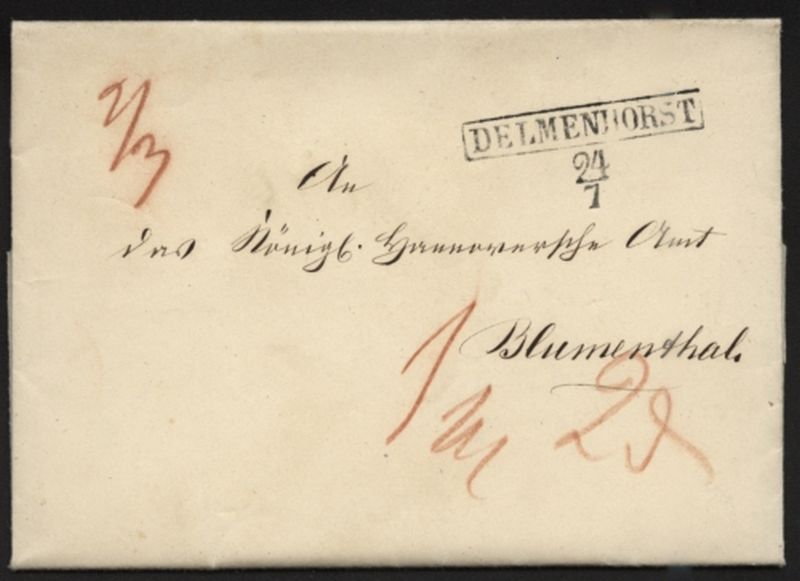 DELMENHORST
24
7
An
das Königl. Hannoversche Amt
Blumenthal.
2